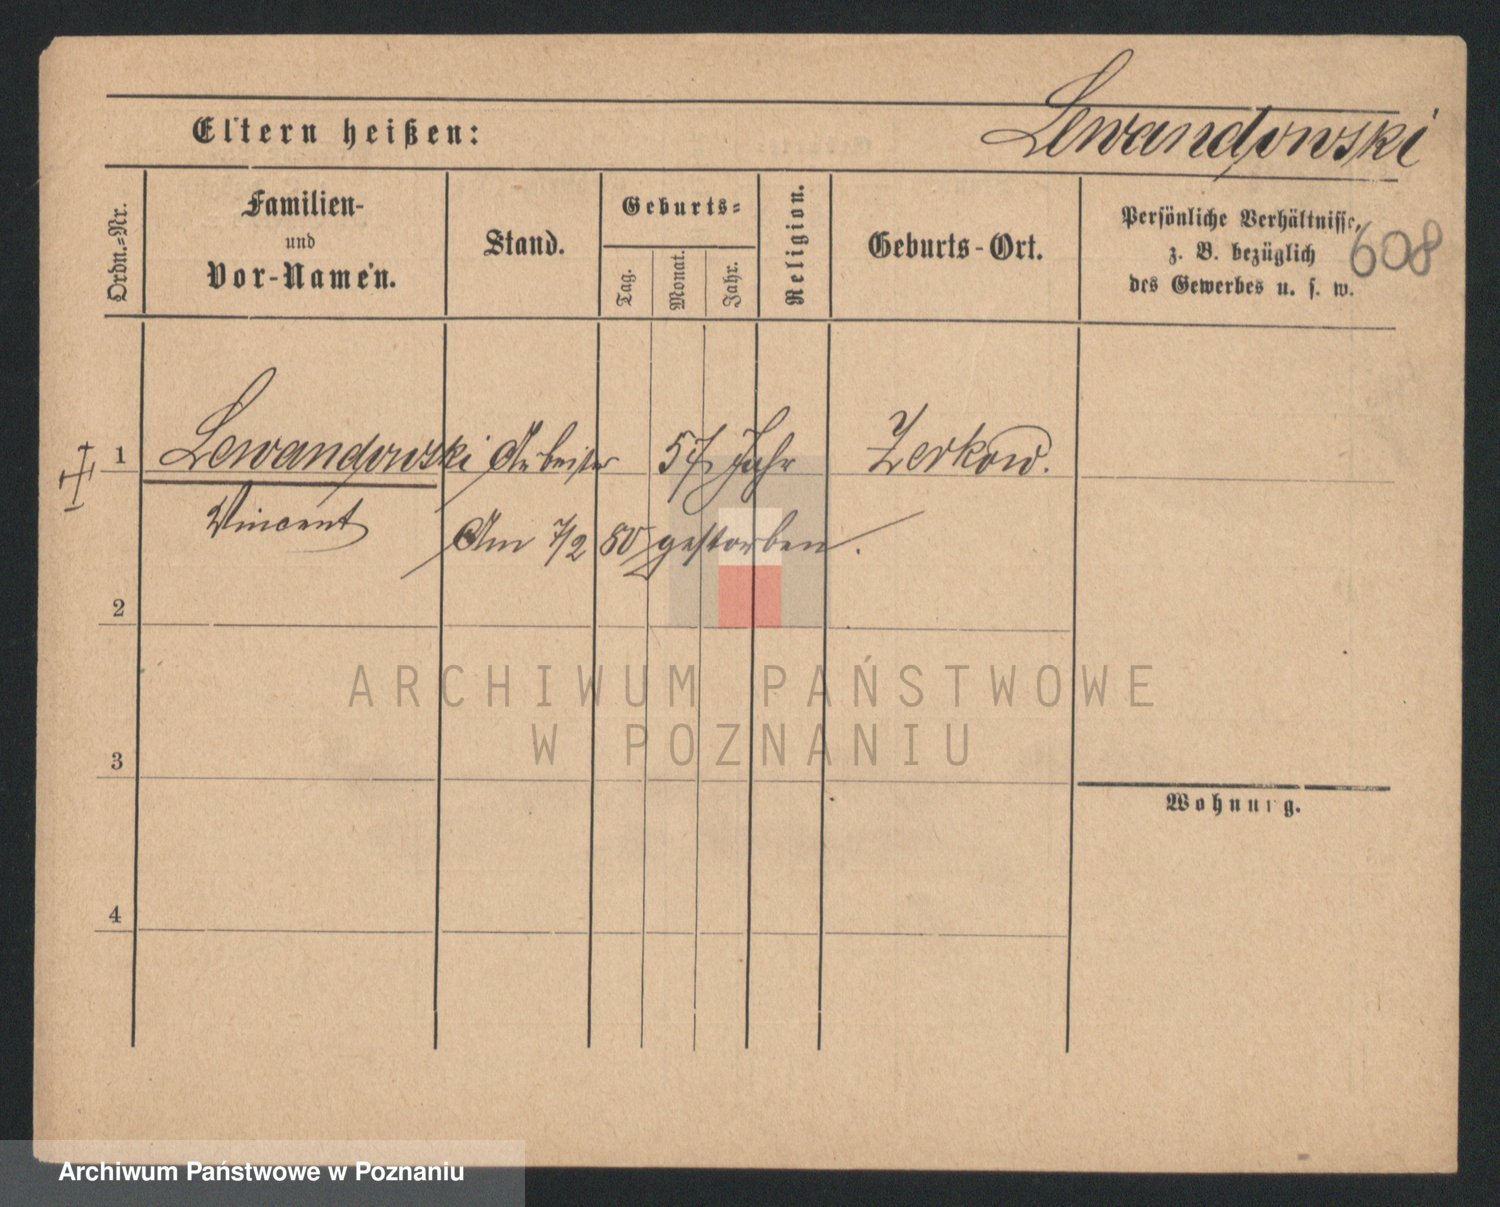 Lewandowski
Eltern heißen:
608
Ordn.-Nr.
Familien-
und
Vor-Namen.
Stand.
Geburts-
Tag.
Monat.
Jahr.
Religion.
Geburts-Ort.
Persönliche Verhältnisse,
z. B. bezüglich
des Gewerbes u. s. w.
1 Lewandowski Arbeiter 57 Jahr Zerkow.
Vincent
Am 7/2 80 gestorben.
2
3
Wohnung.
4
ARCHIWUM PAŃSTWOWE
W POZNANIU
Archiwum Państwowe w Poznaniu